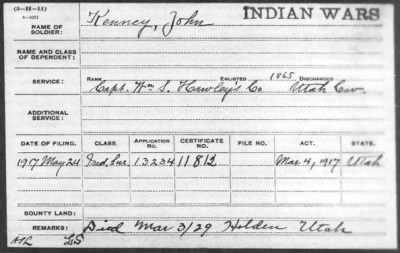 (3-H-11)
INDIAN WARS
NAME OF SOLDIER: Kenney, John
NAME AND CLASS OF DEPENDENT:
RANK ENLISTED 1865 DISCHARGED
SERVICE: Capt. Wm S. Hawley's Co Utah Cav.
ADDITIONAL SERVICE:
DATE OF FILING. CLASS. APPLICATION NO. CERTIFICATE NO. FILE NO. ACT. STATE.
1917 May 24 Ind. Sur. 13234 11812 Mar 4, 1917 Utah
BOUNTY LAND:
REMARKS: Died Mar 3/29 Holden Utah